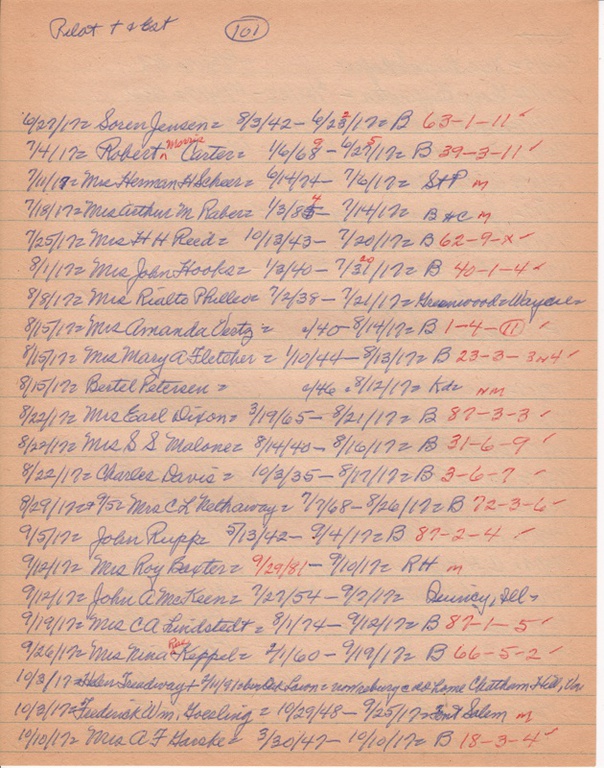 Pilot + & Est (101)
6/27/17= Soren Jensen= 8/3/42 - 6/23/17= B 63-1-11 ✓
7/4/17= Robert Morris Carter= 1/6/68 - 6/25/17= B 39-3-11 ✓
7/11/17= Mrs Herman H Scheer= 6/14/74 - 7/6/17= St P m
7/18/17= Mrs Arthur M Raber= 1/3/84 - 7/14/17= B HC m
7/25/17= Mrs H H Reed= 10/13/43 - 7/20/17= B 62-9-X ✓
8/1/17= Mrs John Hooks= 1/3/40 - 7/20/17= B 40-1-4 ✓
8/8/17= Mrs Rialto 7/2/38 - 7/21/17= Greenwood=
8/15/17= Mrs Amanda Vertz= c/40 - 8/14/17= B 1-4-11 ✓
8/15/17= Mrs Mary A Fletcher= 1/10/44 - 8/13/17= B 23-3-3N4 ✓
8/15/17= Bertel Petersen= c/46 = 8/12/17= Kd= nm
8/22/17= Mrs Earl Dixon= 3/19/65 - 8/21/17= B 87-3-3 ✓
8/22/17= Mrs S S Malone= 8/14/40 - 8/16/17= B 31-6-9 ✓
8/22/17= Charles Davis= 10/3/35 - 8/17/17= B 3-6-7 ✓
8/29/17=+9/5= Mrs C L Hathaway= 7/7/68 - 8/26/17= B 72-3-6 ✓
9/5/17= John Rupp= 5/13/42 - 9/4/17= B 87-2-4 ✓
9/12/17= Mrs Roy Baxter= 9/29/81 - 9/10/17= RH m
9/12/17= John A McKeen= 7/27/54 - 9/7/17= Quincy, Ill=
9/19/17= Mrs C A Lindstedt= 8/1/74 - 9/12/17= B 87-1-5 ✓
9/26/17= Mrs Nina Rea Keppel= 2/1/60 - 9/19/17= B 66-5-2 ✓
10/3/17= Helen Treadway + home Chatham Hill, Va
10/3/17= Frederick Wm. Goesling= 10/29/48 - 9/25/17= Ent Salem m
10/10/17= Mrs A F Garske= 3/30/47 - 10/10/17= B 18-3-4 ✓